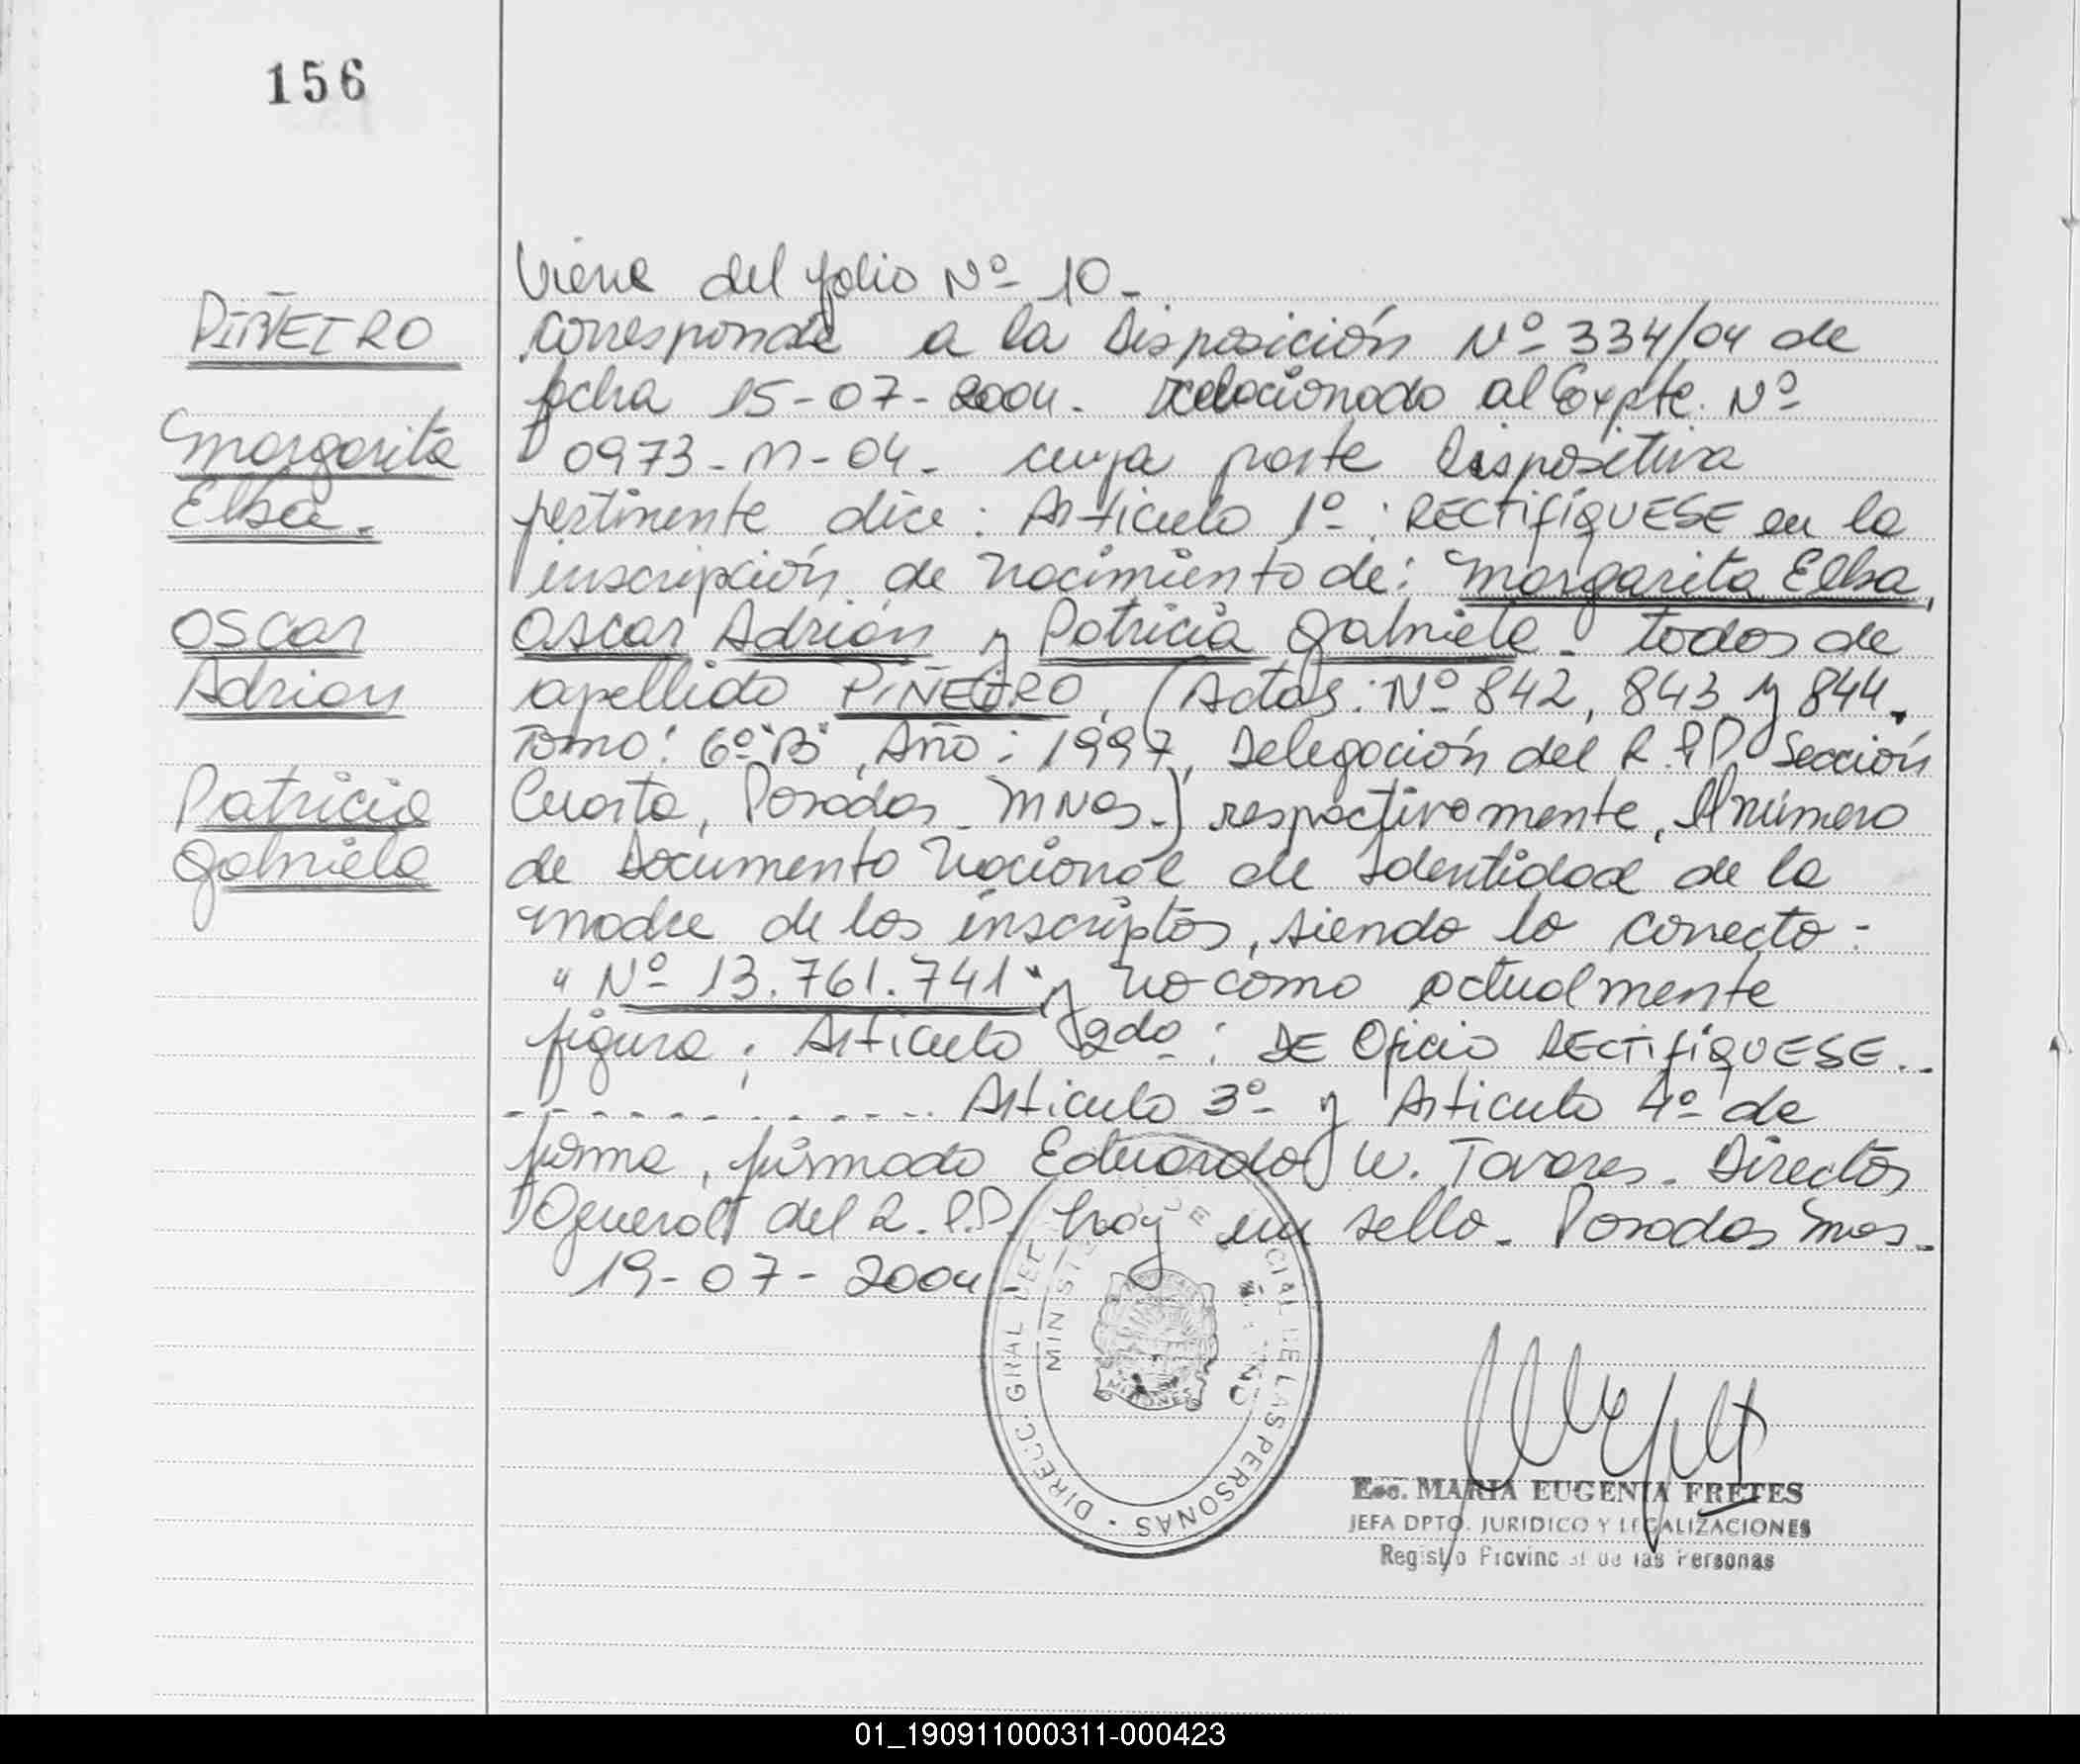 156
Viene del folio Nº 10-
PIÑEIRO
Corresponde a la Disposición Nº 334/04 de
fecha 15-07-2004. relacionado al Expte. Nº
Margarita
0973-M-04- cuya parte Dispositiva
Elba.
pertinente dice: Artículo 1º: RECTIFÍQUESE en la
inscripción de Nacimiento de: Margarita Elba,
Oscar
Oscar Adrián y Patricia Gabriela. todos de
Adrian
apellido PIÑEIRO, (Actas: Nº 842, 843 y 844.
Tomo: 6º"B", Año: 1997, Delegación del R.P.P. Sección
Patricia
Cuarta, Posadas Mnes.) respectivamente, El número
Gabriela
de Documento Nacional de Identidad de la
madre de los inscriptos, siendo lo correcto:
"Nº 13.761.741" y no como actualmente
figura; Artículo 2do: DE Oficio RECTIFÍQUESE...
- - - - - - - - - - - Artículo 3º y Artículo 4º de
forma, firmado Eduardo W. Tavares. Director
General del R.P.P. hay un sello. Posadas Mnes.
19-07-2004.
DIRECC. GRAL. DEL CIAL DE LAS PERSONAS
MISIONES
Esc. MARIA EUGENIA FRETES
JEFA DPTO. JURIDICO Y LEGALIZACIONES
Registro Provincial de las Personas
01_190911000311-000423